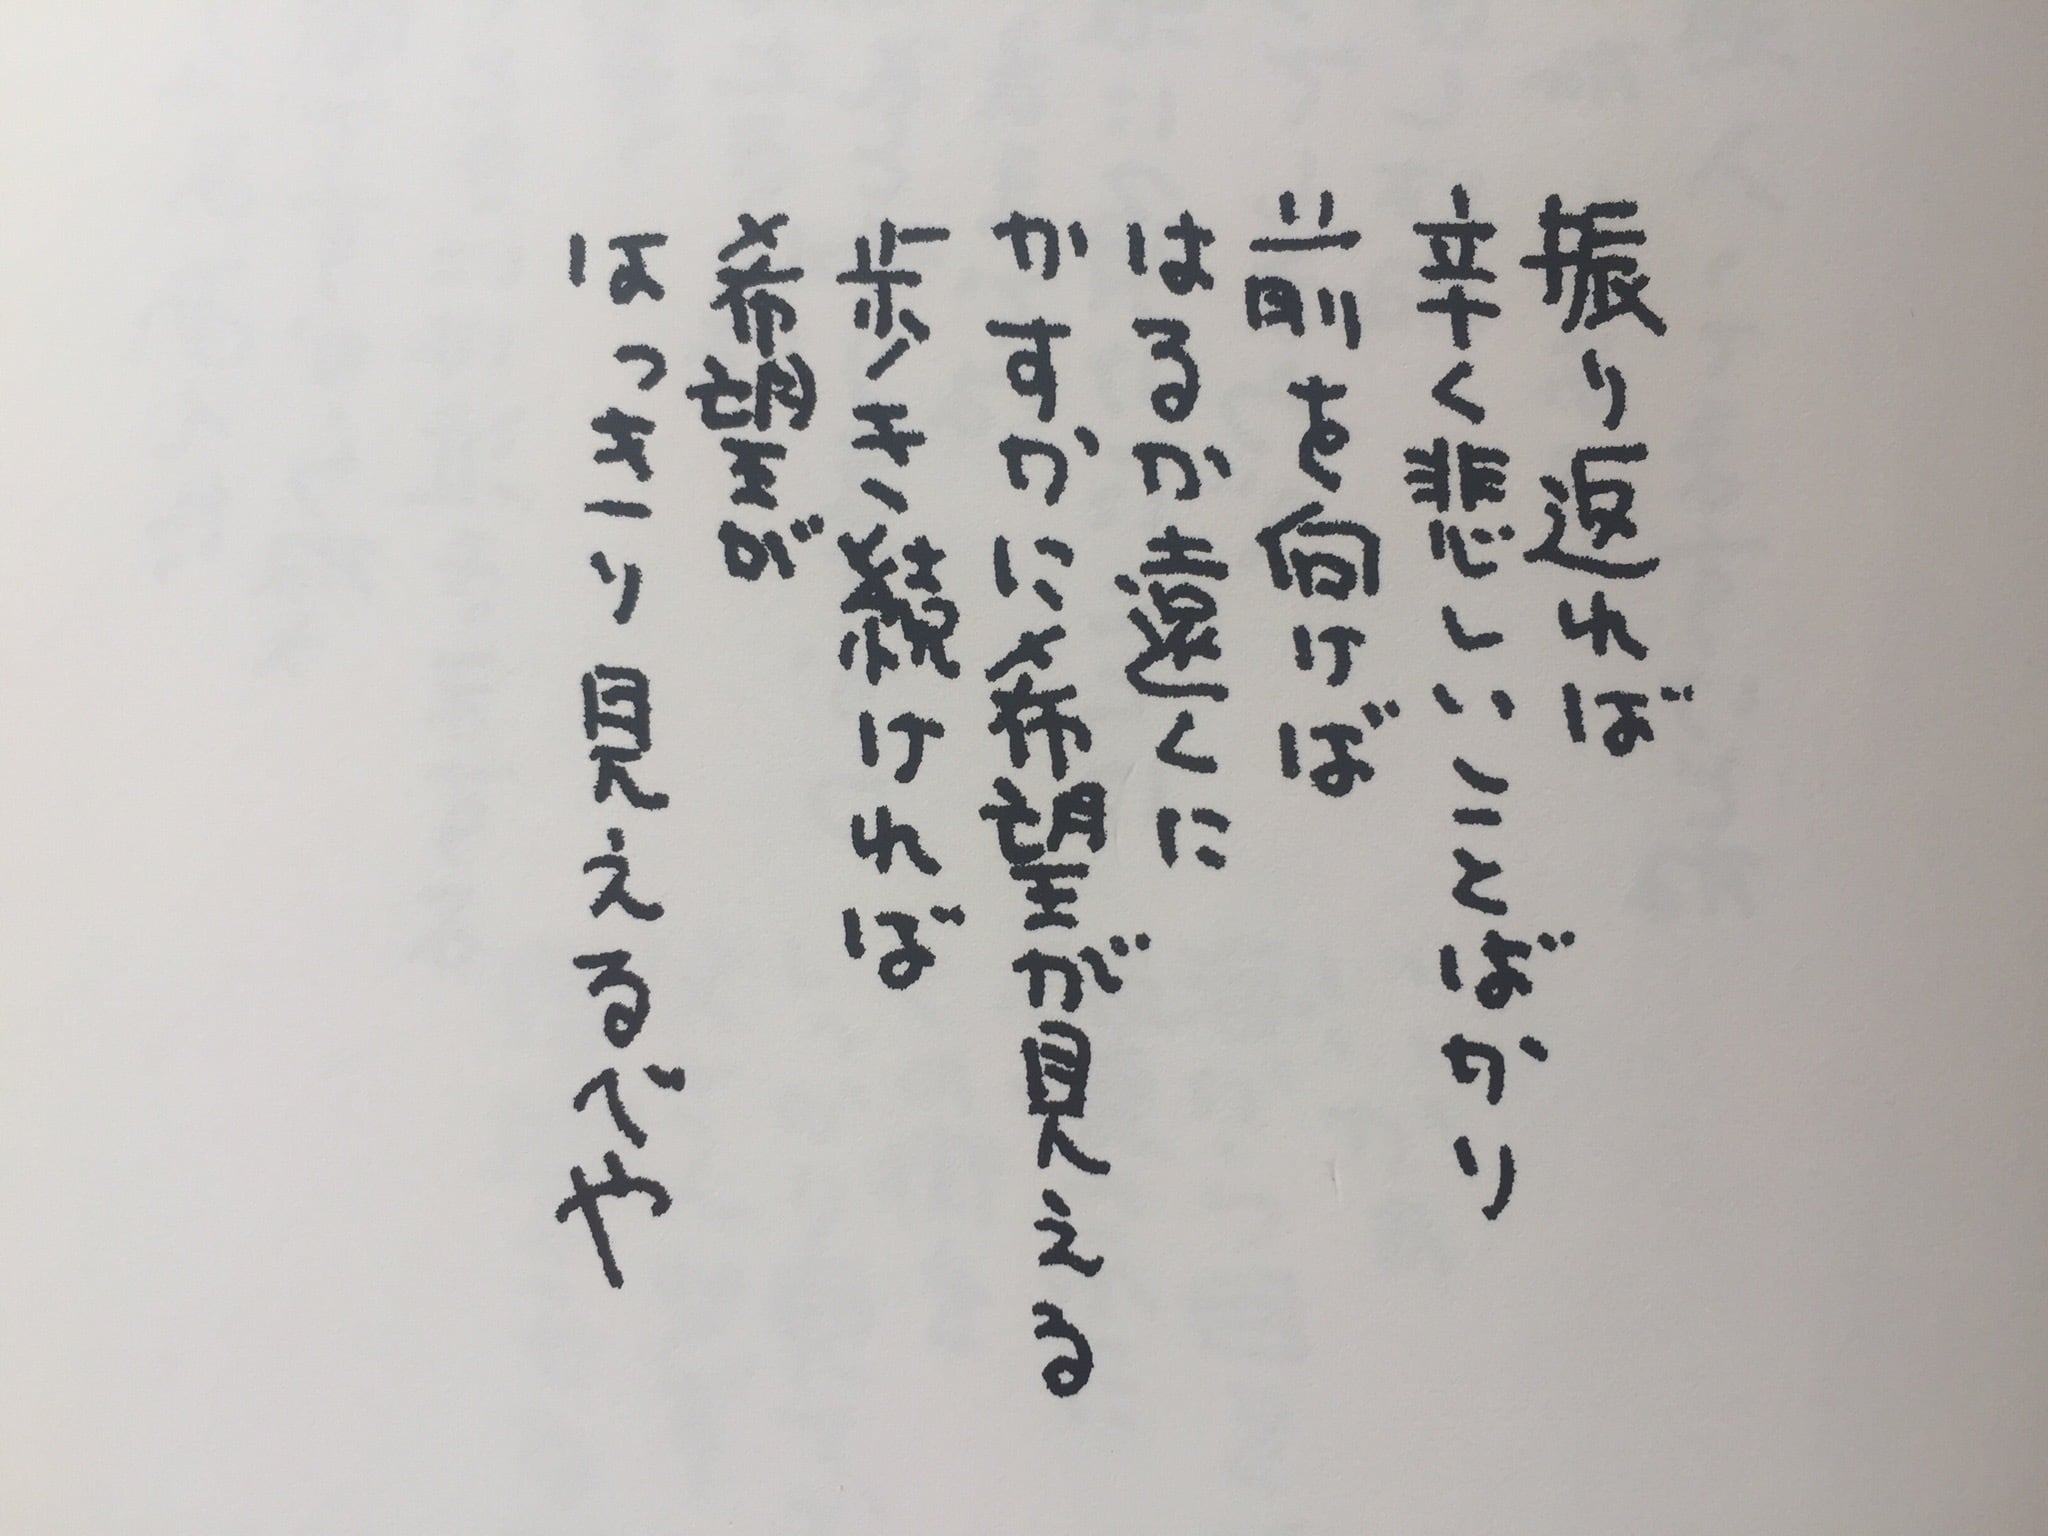 振り返れば
辛く悲しいことばかり
前を向けば
はるか遠くに
かすかに希望が見える
歩き続ければ
希望が
はっきり見えるでや